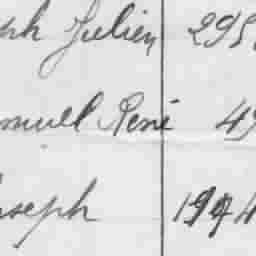 ph Julien 295
muel René 49
oseph 1944